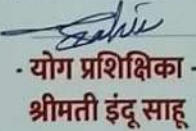 · योग प्रशिक्षिका ·
श्रीमती इंदू साहू